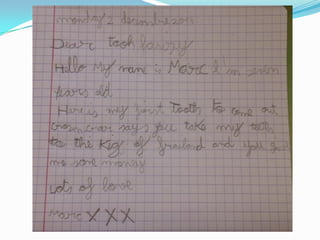 monday 2 decembre 2013
Dear tooh faurry
Hello My name is Marc I'm seven
years old
Here is my first Tooth to come out
says you take my teeth
to the King of and you
me some money
Lots of love
Marc X X X